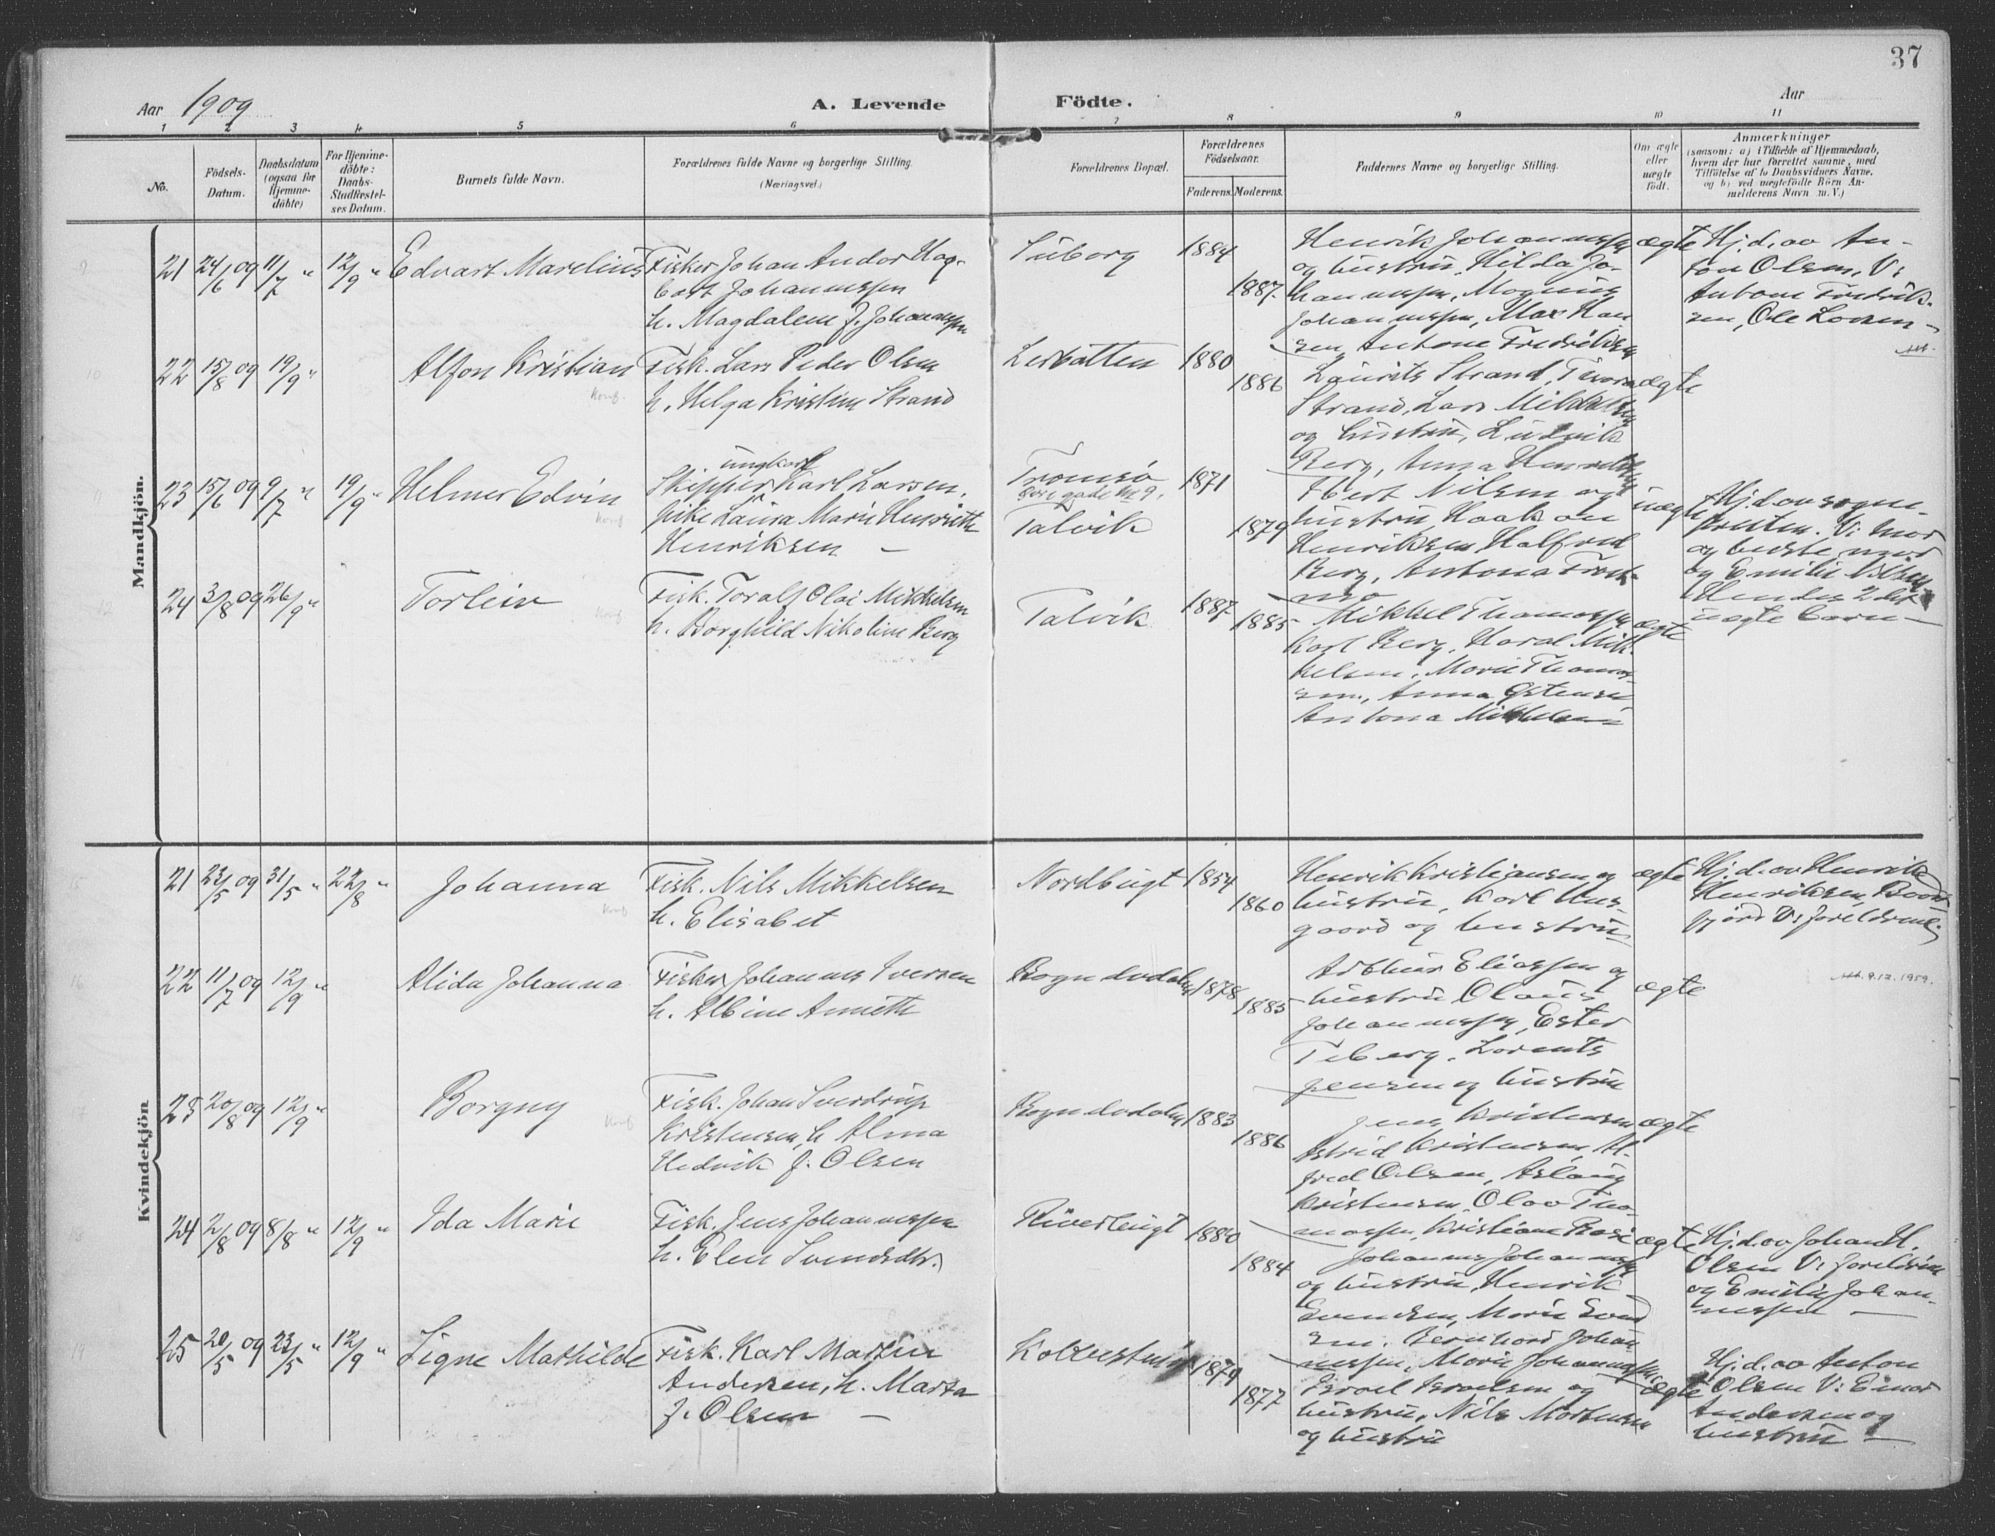 37
Aar 1909
A. Levende Födte.
Aar
1 2 3 4 5 6 7 8 9 10 11
No.
Födsels-Datum.
Daabsdatum (ogsaa for Hjemme-döbte)
For Hjemme-döbte: Daabs-Stadfæstel-ses Datum.
Barnets fulde Navn.
Forældrenes fulde Navne og borgerlige Stilling.
(Næringsvei.)
Forældrenes Bopæl.
Forældrenes Födselsaar.
Faderens. Moderens.
Faddernes Navne og borgerlige Stilling.
Om ægte eller uægte födt.
Anmærkninger
(saasom: a) i Tilfælde af Hjemmedaab,
hvem der har forrettet samme, med
Tilföielse af to Daabsvidners Navne.
og b) ved uægtefödte Börn An-
melderens Navn m. V.)
Mandkjön.
21 24/6 09 11/7 " 12/9 " Edvart Marelius
Fisker Johan Andor Hag-
bart Johannessen
h. Magdalene f. Johannessen
1884
1887
Henrik Johannessen
og hustru, Hilda Jo-
hannessen, Magnus
Johannessen, Max Han
sen, Antone Fredriksen
ægte
Hj. d. av An-
ton Olsen. V:
Antone Fredrik-
sen, Ole Larsen
22 15/8 09 19/9 "
Alfon Kristian
konf.
Fisk. Lars Peder Olsen
h. Helga Kristine Strand
Lerbotten
1880
1886
Laurits Strand,
Strand, Lars Mikkelsen
og hustru, Ludvik
Berg, Anna Henriksen
ægte
23 15/6 09 9/7 " 19/9 "
Helmer Edvin
konf
ungkarl
Skipper Karl Larsen,
pike Laura Marie Henriette
Henriksen —
Tromsø
gade No 9.
Talvik
1871
1879
Nilsen og
hustru, Haakon
Henriksen, Halfred
Berg, Antona
uægte
Hj. d. av sogne-
presten. V: mor
og beste mor
og Emilie Nilsen
Hendes 2det
uægte barn —
24 3/8 09 26/9 "
Torleiv
konf
Fisk. Toralf Olai Mikkelsen
h. Borghild Nikoline Berg
Talvik
1887
1885
Mikkel Thomassen
Karl Berg, Haral Mik-
kelsen, Marie Thomas-
sen, Anna Østensen
Antona Mikkelsen
ægte
Kvindekjön
21 23/5 09 31/5 " 22/8 "
Johanna
konf
Fisk. Nils Mikkelsen
h. Elisabet
Nordbugt
1854
1860
Henrik Kristiansen og
hustru, Karl Hus-
gaard og hustru
ægte
Hj. d. av Henrik
Henriksen,
V: foreldrene.
22 11/7 09 12/9 "
Alida Johanna
Fisker Johannes Iversen
h. Albine Annette
1878
1885
Arthur Eliassen og
hustru Olaus
Johannessen, Ester
Lorents
Jensen og hustru
ægte
9.12.1959.
23 20/8 09 12/9 "
Borgny
konf
Fisk. Johan Sverdrup
Kristensen, h. Alma
Hedvik f. Olsen
1883
1886
Jens Kristensen
Astrid Kristensen, Al-
fred Olsen, Aslaug
Kristensen, Olav Tho-
massen, Kristiane
ægte
24 2/8 09 8/8 " 12/9 "
Ida Marie
Fisk. Jens Johannessen
h. Elen Svendsdtr.
1880
1884
Johannes Johannessen
og hustru, Henrik
Svendsen, Marie Svend
sen, Bernhard Johan
nessen, Marie Johannessen
ægte
Hj. d. av Johan H.
Olsen V: foreldrene
og Emilie Johan-
nessen —
25 20/5 09 23/5 " 12/9 "
Signe Mathilde
Fisk. Karl Martin
Andersen, h. Marta
f. Olsen —
1879
1877
Israel Israelsen og
hustru, Nils Mortensen
og hustru
ægte
Hj. d. av Anton
Olsen V: Einar
Andersen og
hustru —